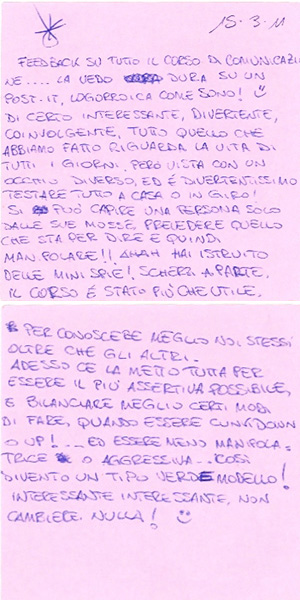 15.3.11
FEEDBACK SU TUTTO IL CORSO DI COMUNICAZIO
NE.... LA VEDO DURA SU UN
POST-IT, LOGORROICA COME SONO!
DI CERTO INTERESSANTE, DIVERTENTE,
COINVOLGENTE, TUTTO QUELLO CHE
ABBIAMO FATTO RIGUARDA LA VITA DI
TUTTI I GIORNI, PERÒ VISTA CON UN
OCCHIO DIVERSO, ED É DIVERTENTISSIMO
TESTARE TUTTO A CASA O IN GIRO!
SI PUÒ CAPIRE UNA PERSONA SOLO
DALLE SUE MOSSE, PRECEDERE QUELLO
CHE STA PER DIRE E QUINDI
MANIPOLARE!! AHAH HAI ISTRUITO
DELLE MINI SPIE! SCHERZI A PARTE,
IL CORSO É STATO PIÙ CHE UTILE,
PER CONOSCERE MEGLIO NOI STESSI
OLTRE CHE GLI ALTRI.
ADESSO CE LA METTO TUTTA PER
ESSERE IL PIÙ ASSERTIVA POSSIBILE,
E BILANCIARE MEGLIO CERTI MODI
DI FARE, QUANDO ESSERE DOWN
O UP!.... ED ESSERE MENO MANIPOLA=
TRICE O AGGRESSIVA... COSÌ
DIVENTO UN TIPO VERDE MODELLO!
INTERESSANTE INTERESSANTE, NON
CAMBIEREI NULLA!